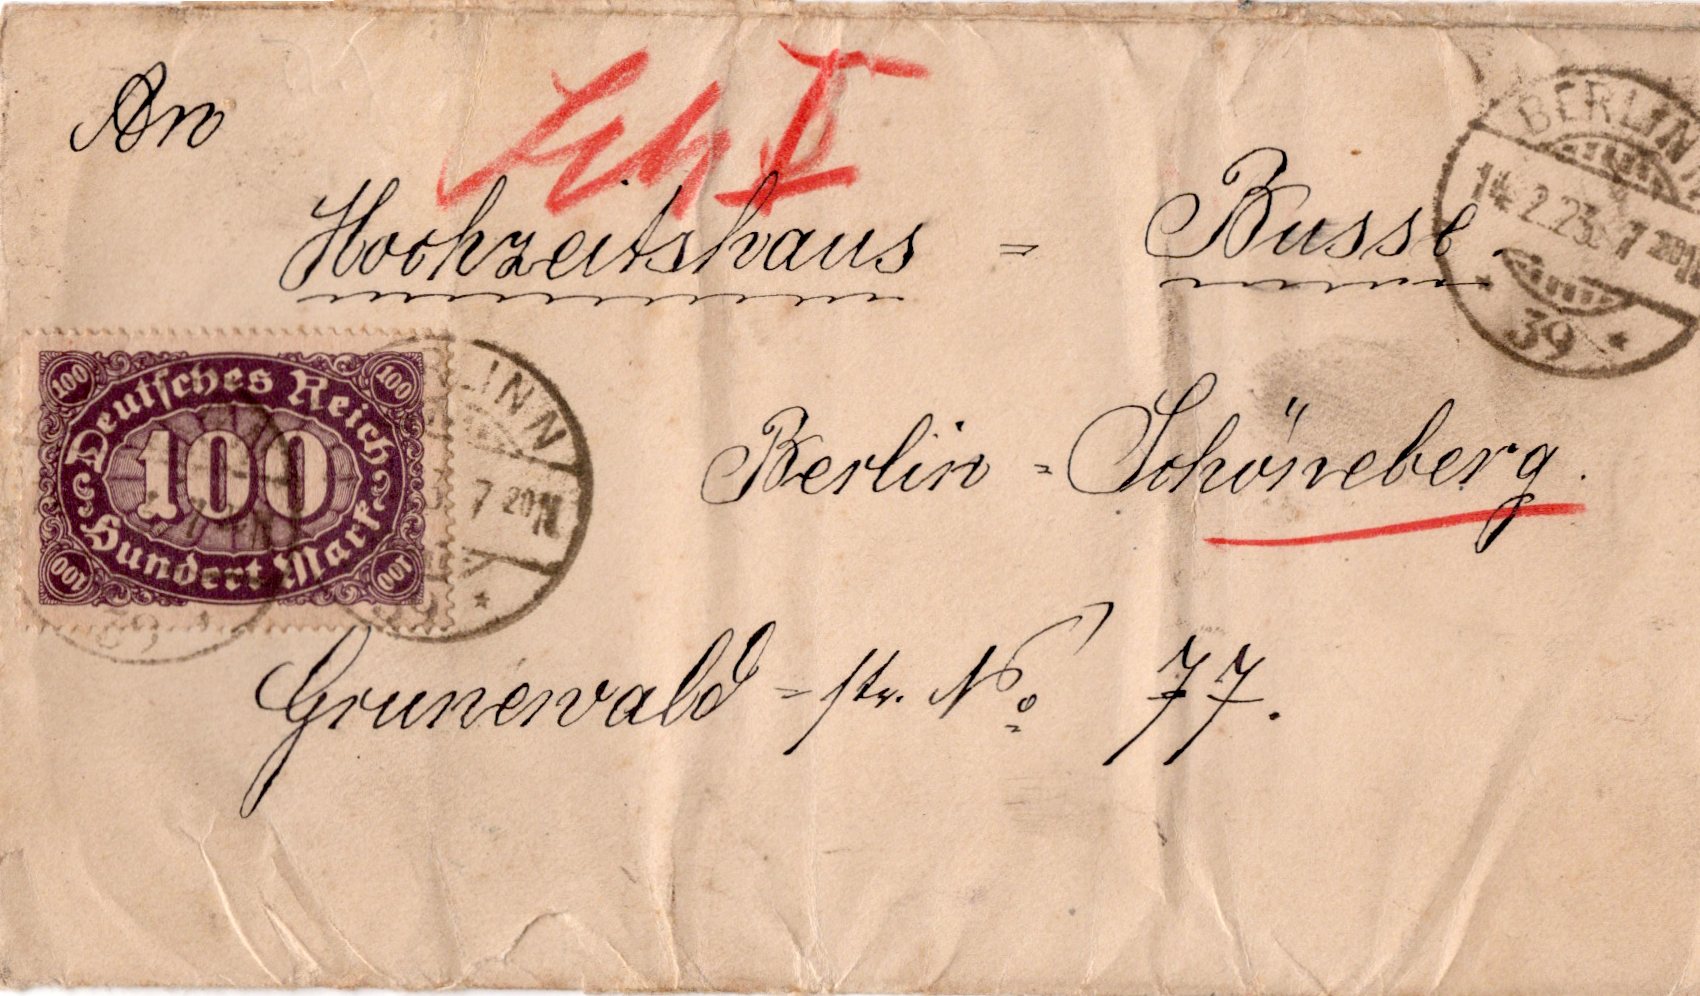 An
Hochzeitshaus = Busse.
Berlin = Schöneberg.
Grunewald = str. No. 77.
100 100
Deutsches Reich
100
Hundert Mark
100 100
BERLIN N
14.2.23. 7
39
LIN N
7